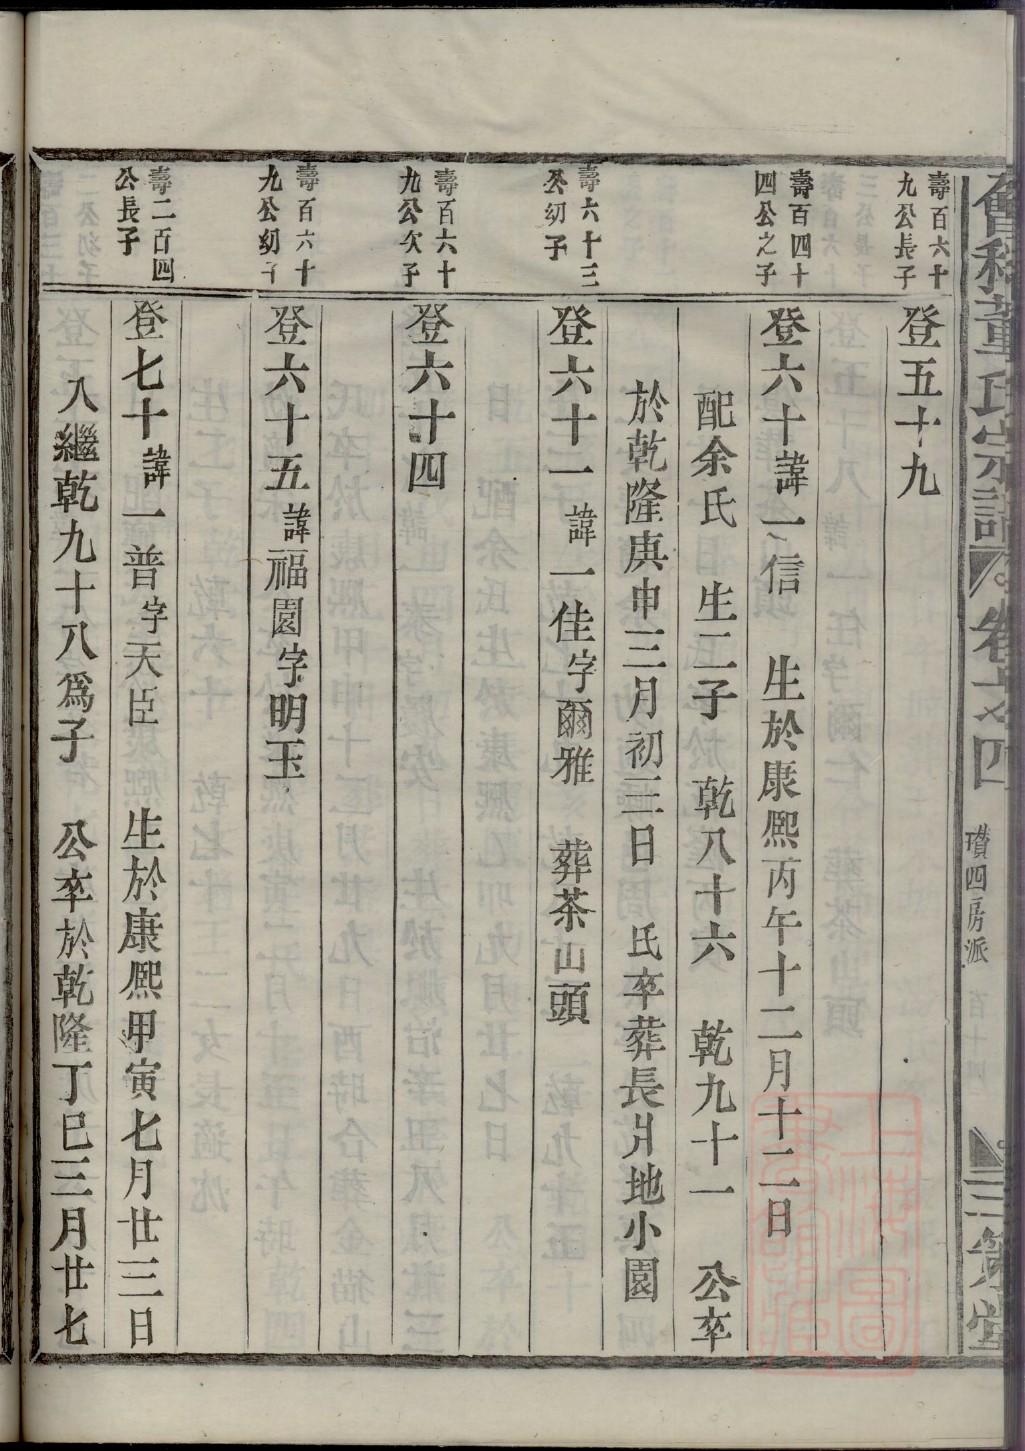 會稽董氏宗譜 卷六 四 瓚四房派 三策堂
壽百六十
九公長子
登五十九
壽百四十
四公之子
登六十諱一信 生於康熙丙午十二月十二日
配余氏 生二子 乾八十六 乾九十一 公卒
於乾隆庚申三月初三日 氏卒葬長爿地小園
壽六十三
公幼子
登六十一諱一佳字爾雅 葬茶山頭
壽百六十
九公次子
登六十四
壽百六十
九公幼子
登六十五諱福園字明玉
壽二百四
公長子
登七十諱一普字天臣 生於康熙甲寅七月廿三日
入繼乾九十八為子 公卒於乾隆丁巳三月廿七